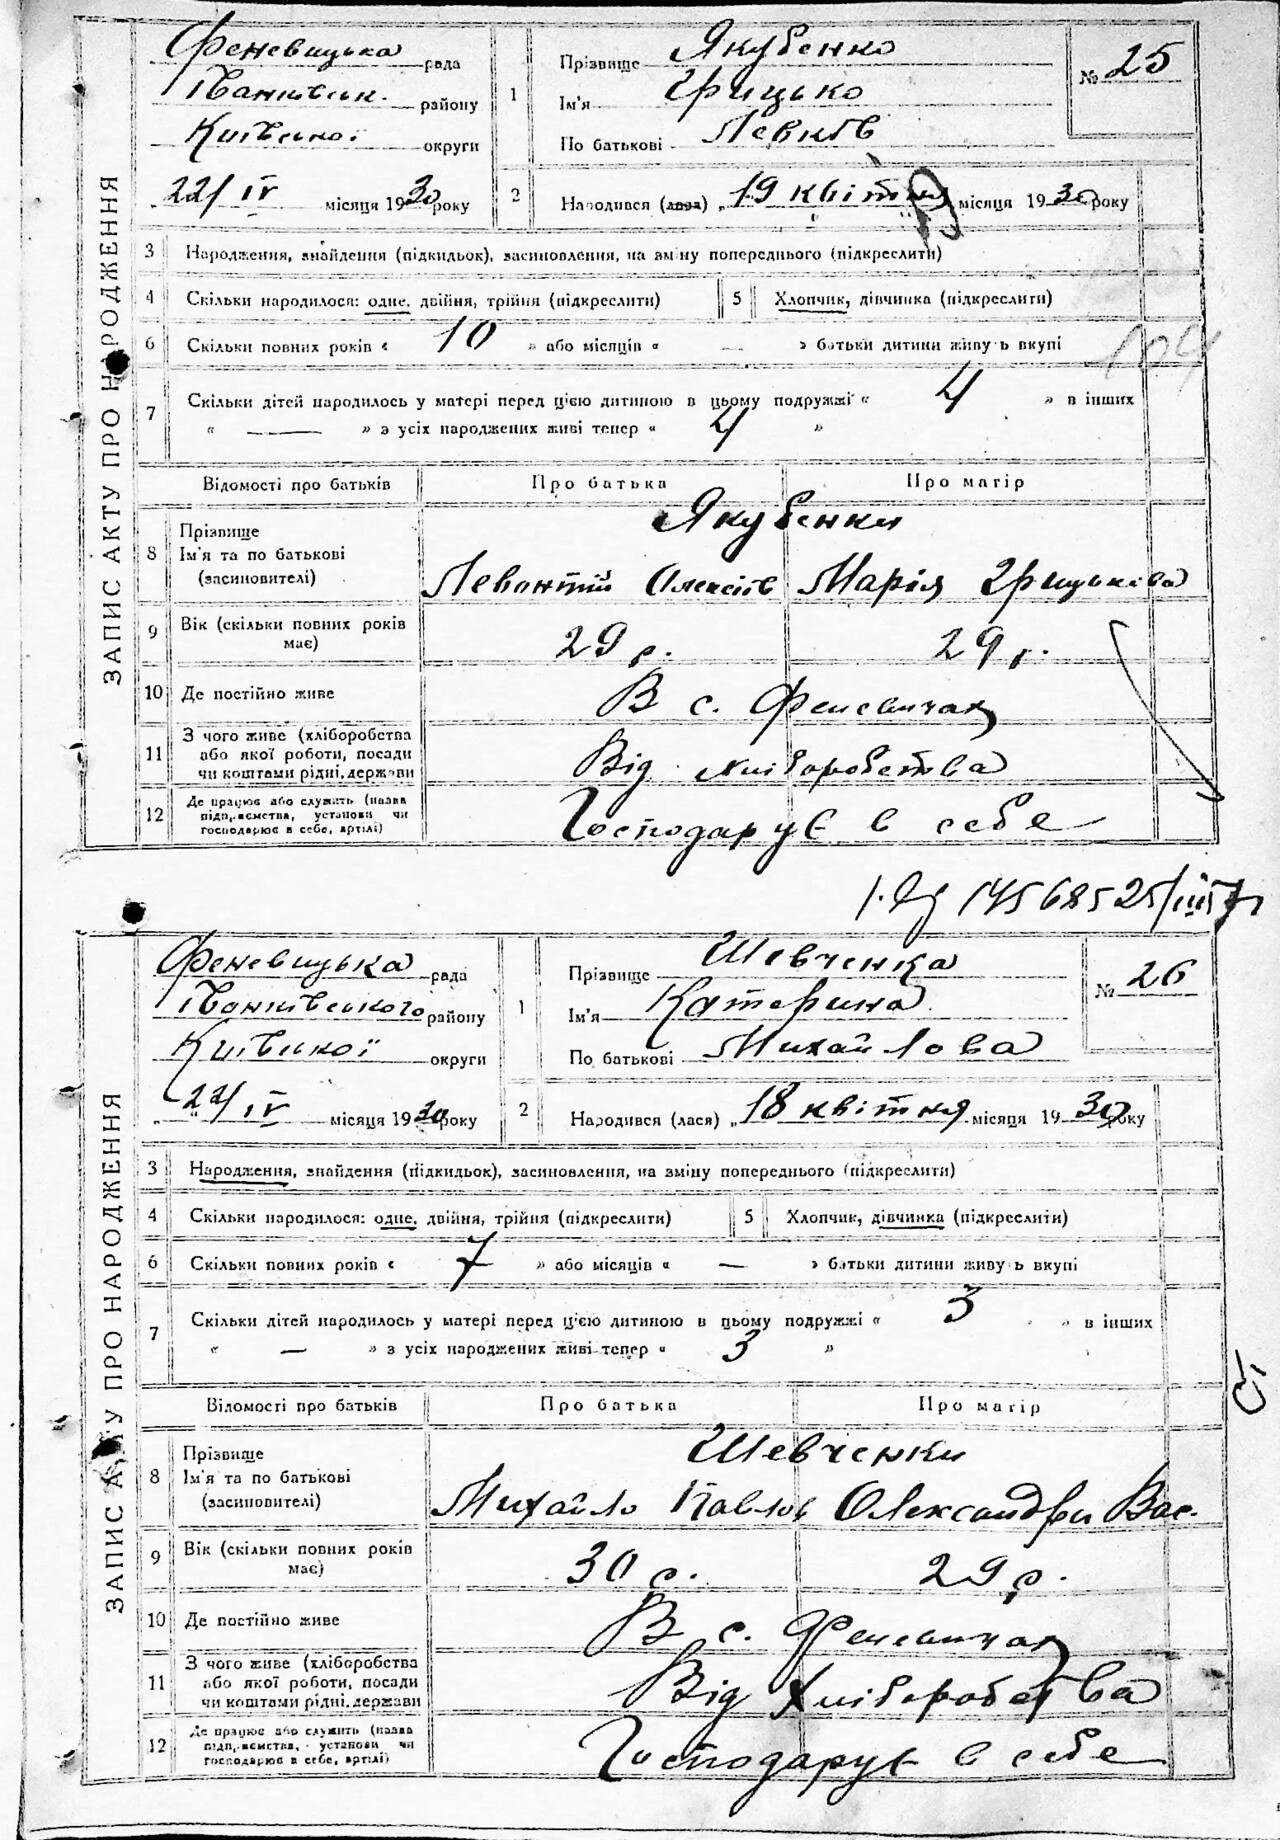 ЗАПИС АКТУ ПРО НАРОДЖЕННЯ
Феневицька рада
Іванківськ. району
Київської округи
22/IV місяця 1930 року
1
Прізвище Якубенко
Ім'я Грицько
По батькові Левків
№ 25
2
Народився (лася) „19 квітня місяця 1930 року
3 Народження, знайдення (підкидьок), засиновлення, на зміну попереднього (підкреслити)
4 Скільки народилося: одне, двійня, трійня (підкреслити) 5 Хлопчик, дівчинка (підкреслити)
6 Скільки повних років « 10 » або місяців « — » батьки дитини живуть вкупі
104
7 Скільки дітей народилось у матері перед цією дитиною в цьому подружжі « 4 » в інших
« — » з усіх народжених живі тепер « 4 »
Відомості про батьків Про батька Про матір
8 Прізвище Якубенки
Ім'я та по батькові (засиновителі) Левонтій Олексіїв Марія Грицькова
9 Вік (скільки повних років має) 29 р. 29 р.
10 Де постійно живе В с. Феневичах
11 З чого живе (хліборобства або якої роботи, посади чи коштами рідні, держави Від хліборобства
12 Де працює або служить (назва підприємства, установи чи господарює в себе, артілі) Господарує в себе
ЗАПИС АКТУ ПРО НАРОДЖЕННЯ
Феневицька рада
Іванківського району
Київської округи
22/IV місяця 1930 року
1
Прізвище Шевченка
Ім'я Катерина
По батькові Михайлова
№ 26
2
Народився (лася) „18 квітня місяця 1930 року
3 Народження, знайдення (підкидьок), засиновлення, на зміну попереднього (підкреслити)
4 Скільки народилося: одне, двійня, трійня (підкреслити) 5 Хлопчик, дівчинка (підкреслити)
6 Скільки повних років « 7 » або місяців « — » батьки дитини живуть вкупі
7 Скільки дітей народилось у матері перед цією дитиною в цьому подружжі « 3 » в інших
« — » з усіх народжених живі тепер « 3 »
Відомості про батьків Про батька Про матір
8 Прізвище Шевченки
Ім'я та по батькові (засиновителі) Михайло Павлов Олександра Вас.
9 Вік (скільки повних років має) 30 р. 29 р.
10 Де постійно живе В с. Феневичах
11 З чого живе (хліборобства або якої роботи, посади чи коштами рідні, держави Від хліборобства
12 Де працює або служить (назва підприємства, установи чи господарює в себе, артілі) Господарує в себе